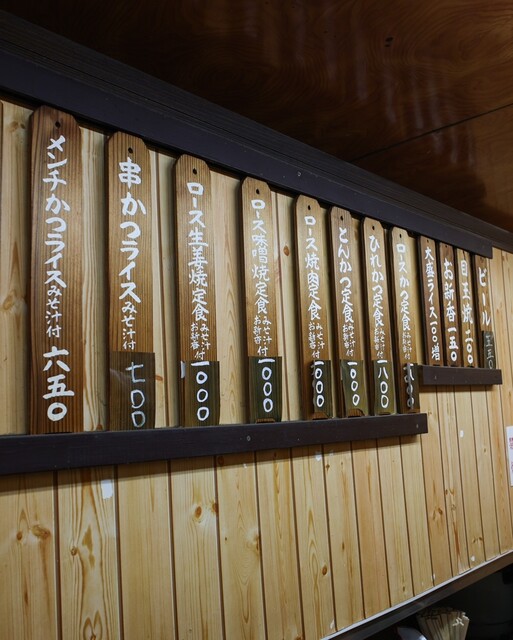 ビール
目玉焼 一〇〇
お新香 一五〇
大盛ライス 一〇〇増
ロースかつ定食 みそ汁 お新香付
ひれかつ定食 みそ汁 お新香付
とんかつ定食 みそ汁 お新香付 一〇〇〇
ロース焼肉定食 みそ汁 お新香付 一〇〇〇
ロース味噌焼定食 みそ汁 お新香付 一〇〇〇
ロース生姜焼定食 みそ汁 お新香付 一〇〇〇
串かつライス みそ汁付 七〇〇
メンチかつライス みそ汁付 六五〇